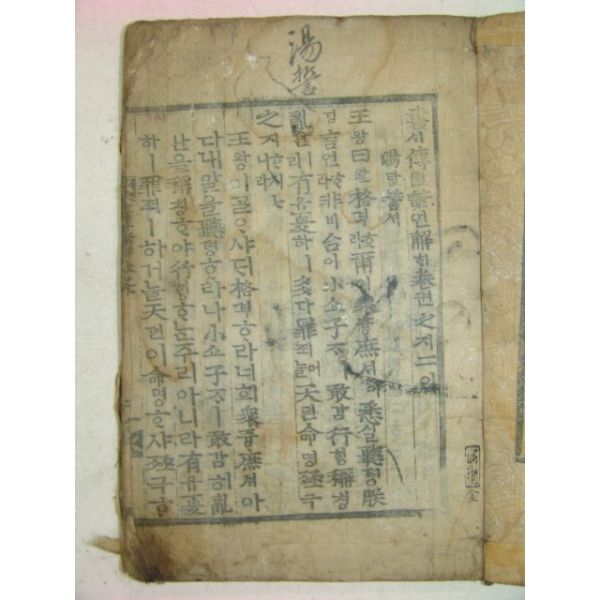 湯誓
書셔傳뎐諺언解ᄒᆡ卷권之지二이
湯탕誓셔
王왕曰왈格격ᄒᆞ라爾이衆즁庶셔아悉실聽텽朕
딤言언ᄒᆞ라非비台이小쇼子ᄌᆞㅣ敢감行ᄒᆡᆼ稱칭
亂란이라有유夏하ㅣ多다罪죄어늘天텬命명殛극
之지ᄒᆞ시ᄂᆞ니라
王왕이ᄀᆞᆯᄋᆞ샤ᄃᆡ格격ᄒᆞ라너희衆즁庶셔아
다내말을聽텽ᄒᆞ라나小쇼子ᄌᆞㅣ敢감히亂
난을稱칭ᄒᆞ야行ᄒᆡᆼᄒᆞᄂᆞᆫ주리아니라有유夏
하ㅣ罪죄ㅣ하거늘天텬이命명ᄒᆞ샤殛극ᄒᆞ